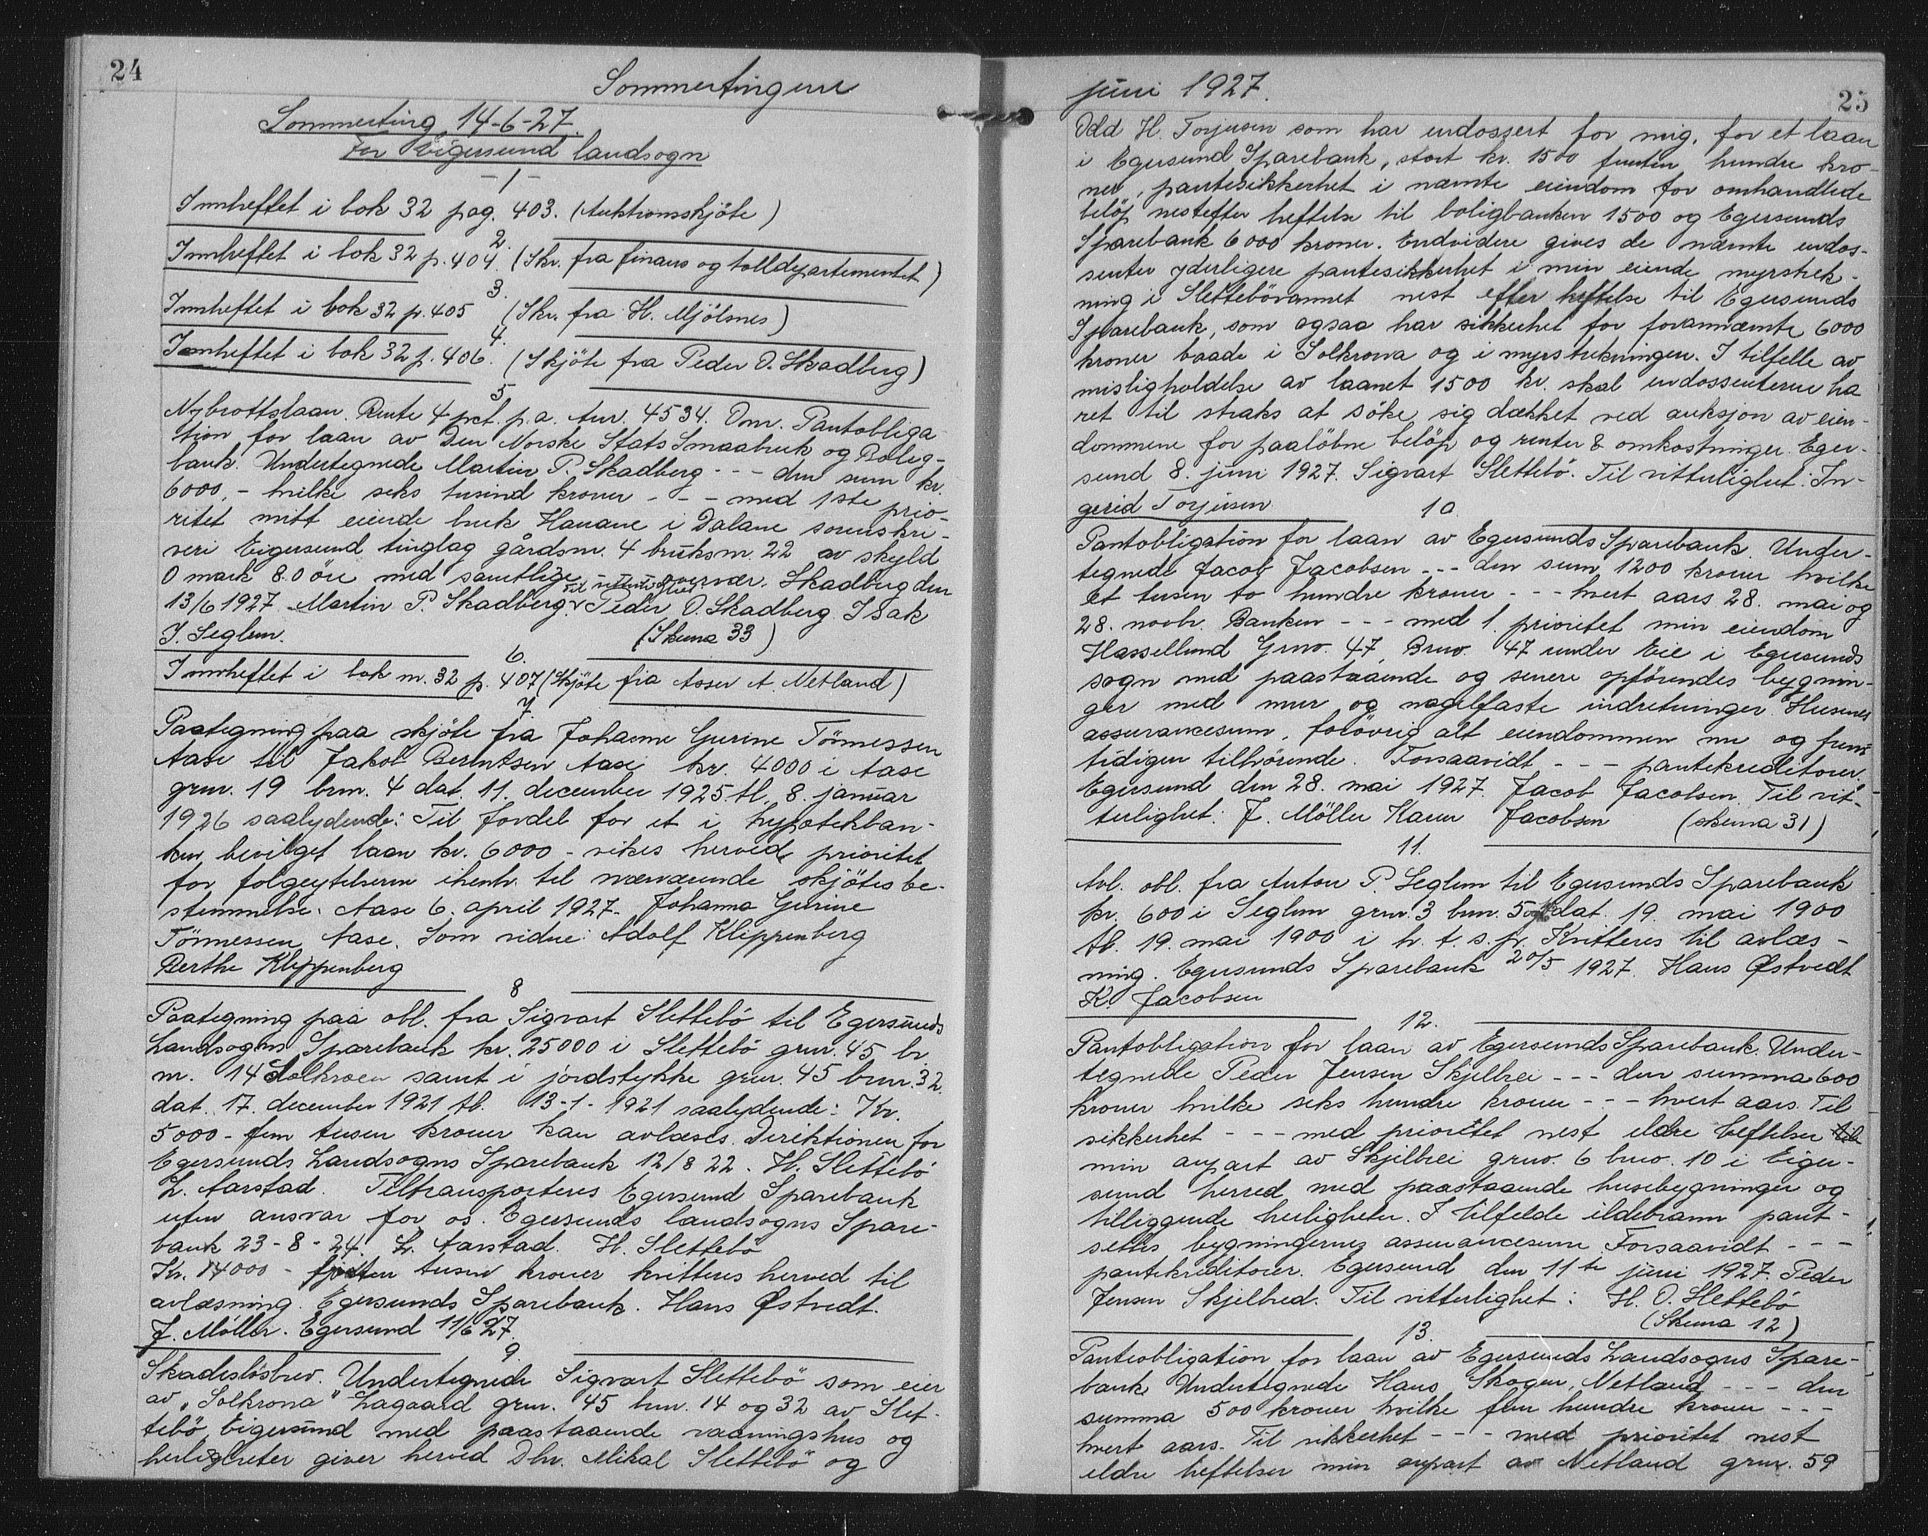 24
Sommertingene
Sommerting 14-6-27.
for Eigersund landsogn
-1-
Innheftet i bok 32 pag. 403. (Auktionsskjöte)
2.
Innheftet i bok 32 p. 404. (Skr. fra finans og tolldepartementet)
3.
Innheftet i bok 32 p. 405 (Skr. fra H. Mjölsnes)
4.
Innheftet i bok 32 p. 406. (Skjöte fra Peder O. Skadberg)
5
Nybrottslaan. Rente 4 pct. p.a. Anr. 4534. Omr. Pantobliga-
tion for laan av Den Norske Stats Smaabruk og Bolig-
bank. Undertegnede Martin P. Skadberg --- den sum kr.
6000,- hvilke seks tusind kroner --- med 1ste prio-
ritet mitt eiende bruk Hanane i Dalane sorenskri-
veri Eigersund tinglag gårdsnr. 4 bruksnr. 22 av skyld
0 mark 80 öre med samtlige --- overvær. Skadberg den
13/6 1927. Martin P. Skadberg. Til vitterlighet Peder O. Skadberg Isak
J. Seglem. (Skema 33)
6.
Innheftet i bok nr. 32 p. 407 (Skjöte fra Aaser A. Netland)
7
Paategning paa skjöte fra Johanne Gurine Tönnessen
Aase til Jakob Berntsen Aase kr. 4000 i Aase
grnr. 19 brnr. 4 dat. 11. december 1925 tl. 8. januar
1926 saalydende: Til fordel for et i hypotekban-
ken bevilget laan kr. 6000 - vikes herved prioritet
for folgeytelserne ihenh. til nærværende skjötes be-
stemmelse. Aase 6. april 1927. Johanna Gurine
Tönnessen Aase. Som vidne: Adolf Klippenberg
Berthe Klippenberg
8
Paategning paa obl. fra Sigvart Slettebö til Egersunds
Landsogns Sparebank kr. 25000 i Slettebö grnr. 45 br.
nr. 14 Solkroen samt i jordstykke grnr. 45 brnr. 32
dat. 17. december 1921 tl. 13-1-1921 saalydende: Kr.
5000 - fem tusen kroner kan avlæses. Direktionen for
Egersunds Landsogns Sparebank 12/8 22. H. Slettebö
L. Aarstad. Tiltransporteres Egersund Sparebank
uten ansvar for os. Egersunds landsogns Spare-
bank 23-8-24. L. Aarstad. H. Slettebö
Kr. 14000 - fjorten tusen kroner kvitteres herved til
avlæsning. Egersunds Sparebank. Hans Østvedt.
J. Möller. Egersund 11/6 27.
9.
Skadeslösbrev. Undertegnede Sigvart Slettebö som eier
av "Solkrona" Lagaard grnr. 45 brnr. 14 og 32 av Slet-
tebö, Eigersund med paastaaende vaaningshus og
herligheter giver herved Dhr. Mikal Slettebö og
juni 1927.
25
Odd H. Torjusen som har endossert for mig, for et laan
i Egersund Sparebank, stort kr. 1500 femten hundre kro-
ner, pantesikkerhet i nævnte eiendom for omhandlede
belöp nestefter heftelse til boligbanken 1500 og Egersunds
Sparebank 6000 kroner. Endvidere gives de nævnte endos-
senter yderligere pantesikkerhet i min eiende myrstrek-
ning i Slettebövannet nest efter heftelse til Egersunds
Sparebank, som ogsaa har sikkerhet for forannævnte 6000
kroner baade i Solkrona og i myrstrekningen. I tilfelle av
misligholdelse av laanet 1500 kr. skal endossenterne ha
ret til straks at söke sig dækket ved auksjon av eien-
dommene for paalöbne belöp og renter & omkostninger. Eger-
sund 8. juni 1927. Sigvart Slettebö. Til vitterlighet: In-
gerid Torjusen
10.
Pantobligation for laan av Egersunds Sparebank. Under-
tegnede Jacob Jacobsen --- den sum 1200 kroner hvilke
et tusen to hundre kroner --- hvert aars 28. mai og
28. novbr. Banken --- med 1. prioritet min eiendom
Hassellund Grno. 47, Brno. 47 under Eie i Egersunds
sogn med paastaaende og senere opförendes bygnin-
ger med mur og nagelfaste indretninger. Husenes
assurancesum, forövrig alt eiendommen nu og frem-
tidigen tilhörende. Forsaavidt --- pantekreditorer.
Egersund den 28. mai 1927. Jacob Jacobsen. Til vit-
terlighet: J. Möller Karen Jacobsen (skema 31)
11.
Avl. obl. fra Anton P. Seglem til Egersunds Sparebank
kr. 600 i Seglem grnr. 3 brnr. 5 dat. 19. mai 1900
tl. 19. mai 1900 i h. t. s. pr. Kvitteres til avlæs-
ning. Egersunds Sparebank 20/5 1927. Hans Østvedt
K. Jacobsen
12.
Pantobligation for laan av Egersunds Sparebank. Under-
tegnede Peder Jensen Skjelbrei --- den summa 600
kroner hvilke seks hundre kroner --- hvert aars. Til
sikkerhet --- med prioritet nest eldre heftelser til
min anpart av Skjelbrei grno. 6 brno. 10 i Eiger-
sund herred med paastaaende husebygninger og
tilliggende herligheter. I tilfelde ildebrann pant-
settes bygningernes assurancesum Forsaavidt ---
pantekreditorer. Egersund den 11te juni 1927. Peder
Jensen Skjelbred. Til vitterlighet: H. O. Slettebö
(Skema 12)
13.
Panteobligation for laan av Egersunds Landsogns Spare-
bank Undertegnede Hans Skogen, Netland --- den
summa 500 kroner hvilke fem hundre kroner ---
hvert aars. Til sikkerhet --- med prioritet nest
eldre heftelser min anpart av Netland grnr. 59